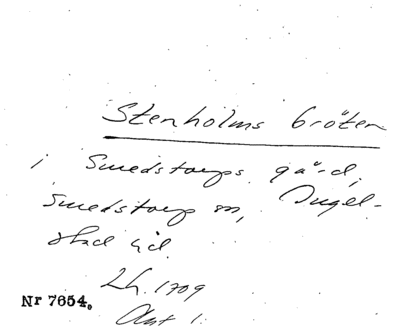 Stenholms bröten
i Smedstorps gård,
Smedstorp sn, Ingel-
stad hd.
Lh. 1709
Akt 1.
Nr 7654.